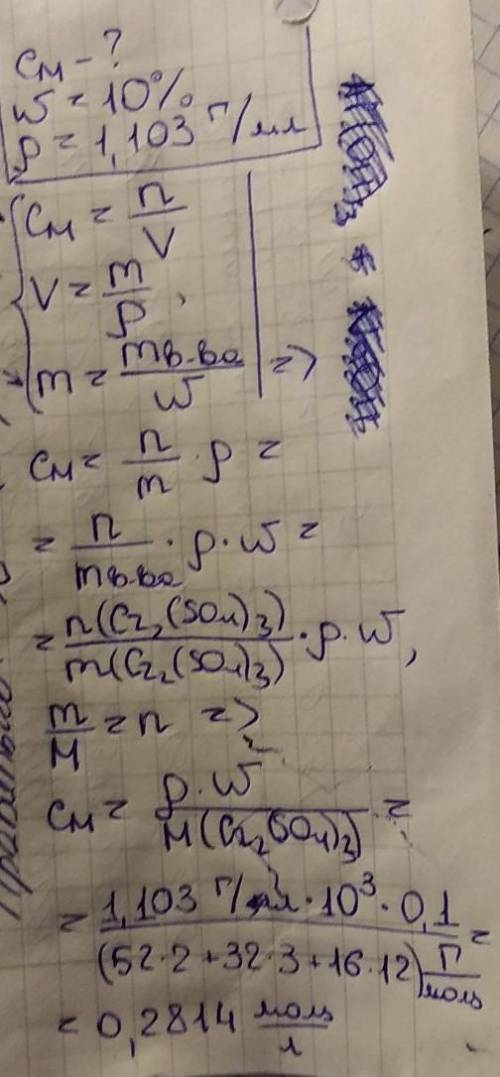 Cм - ?
ω = 10%
ρ = 1,103 г/мл
Cм = n/V
V = m/ρ,
m = mв-ва/ω =>
Cм = n/m · ρ =
= n/mв-ва · ρ · ω =
= n(Cr₂(SO₄)₃)/m(Cr₂(SO₄)₃) · ρ · ω,
m/M = n =>
Cм = ρ · ω/M(Cr₂(SO₄)₃) =
= 1,103 г/мл · 10³ · 0,1/(52·2+32·3+16·12) г/моль =
= 0,2814 моль/л